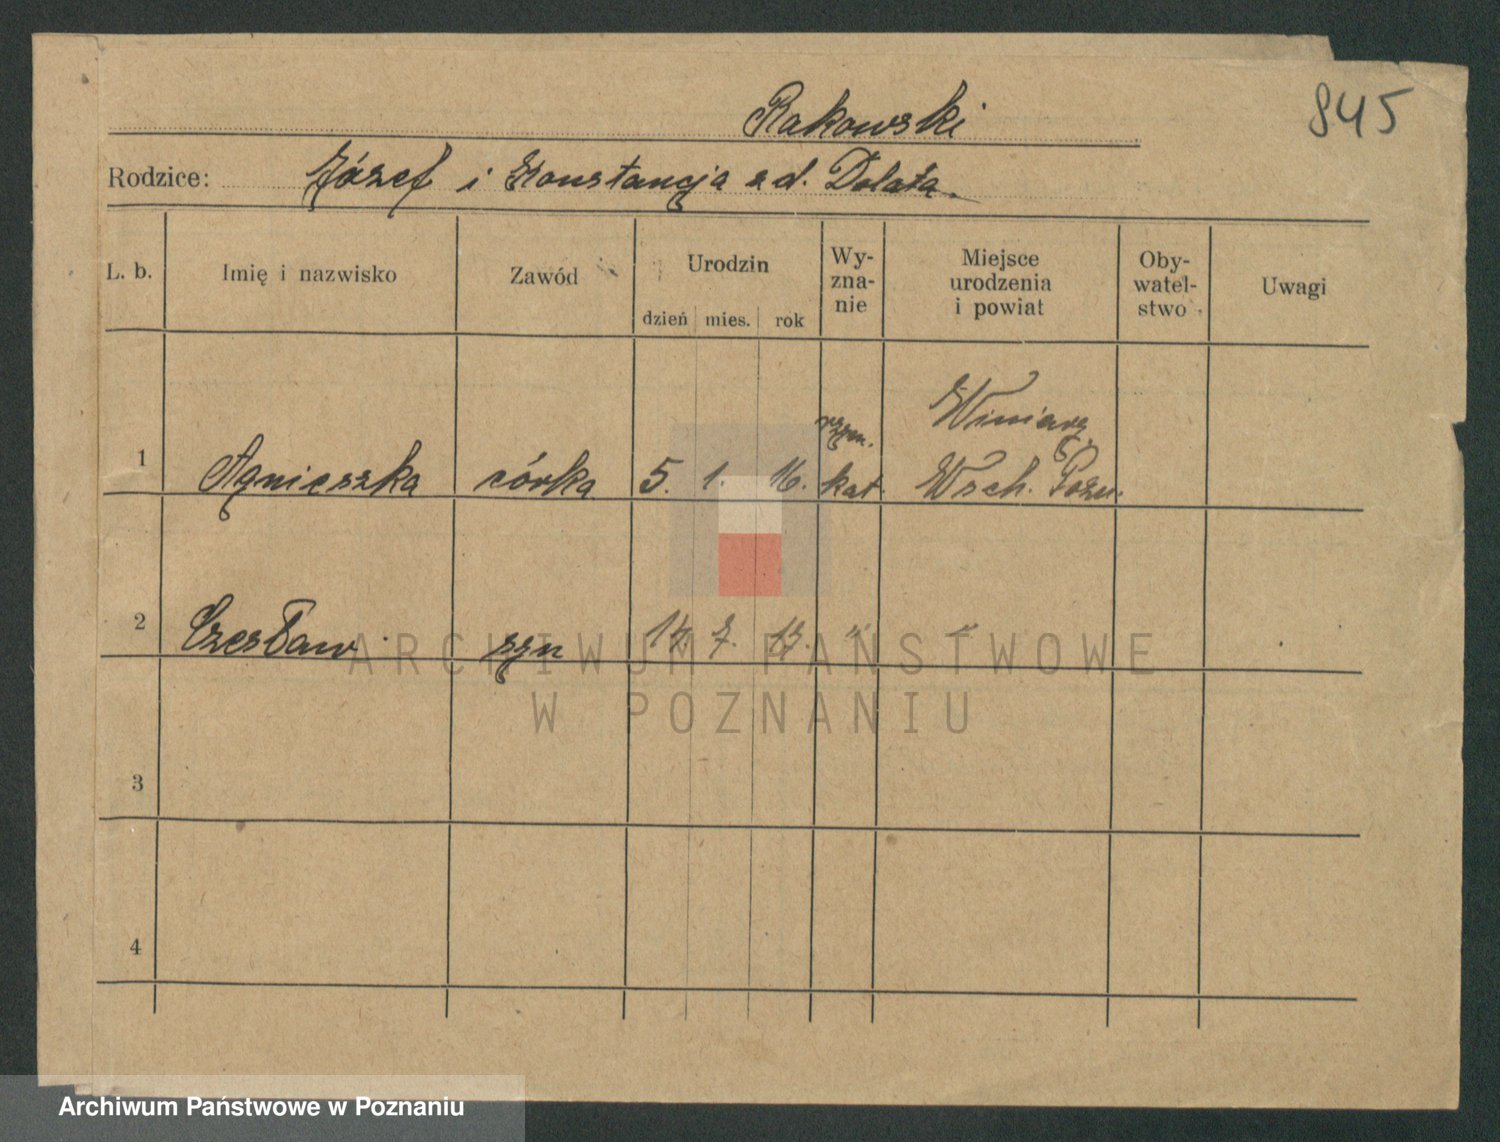 845
Rakowski
Rodzice: Józef i Konstancja z d. Dolata.
L. b. Imię i nazwisko Zawód Urodzin dzień mies. rok Wy-zna-nie Miejsce urodzenia i powiat Oby-watel-stwo Uwagi
1 Agnieszka córka 5. 1. 16. rzym. kat. Winiary Wsch. Pozn.
2 Czesław syn 14. 7. 17. " "
3
4
ARCHIWUM PAŃSTWOWE
W POZNANIU
Archiwum Państwowe w Poznaniu